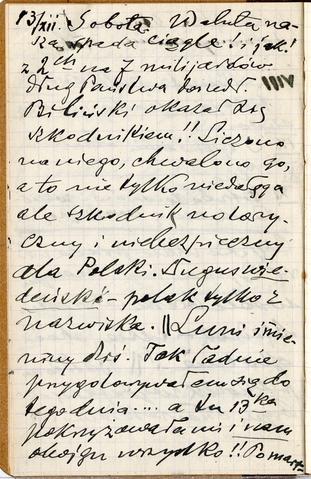 13/XII. Sobota. Waluta na-
sza spada ciągle! i jak!
z 2ch na 7 miljardów
dług Państwa dosedł.
VIII
Biliński okazał się
szkodnikiem!! Liczono
na niego, chwalono go,
a to nie tylko niedołęga
ale szkodnik notory-
czny i niebezpieczny
dla Polski. wie-
deński – polak tylko z
nazwiska. || Luni imie-
niny dziś. Tak ładnie
przygotowywałem się do
tego dnia... a tu 13ka
pokrzyżowała mi i nam
wszystko!!